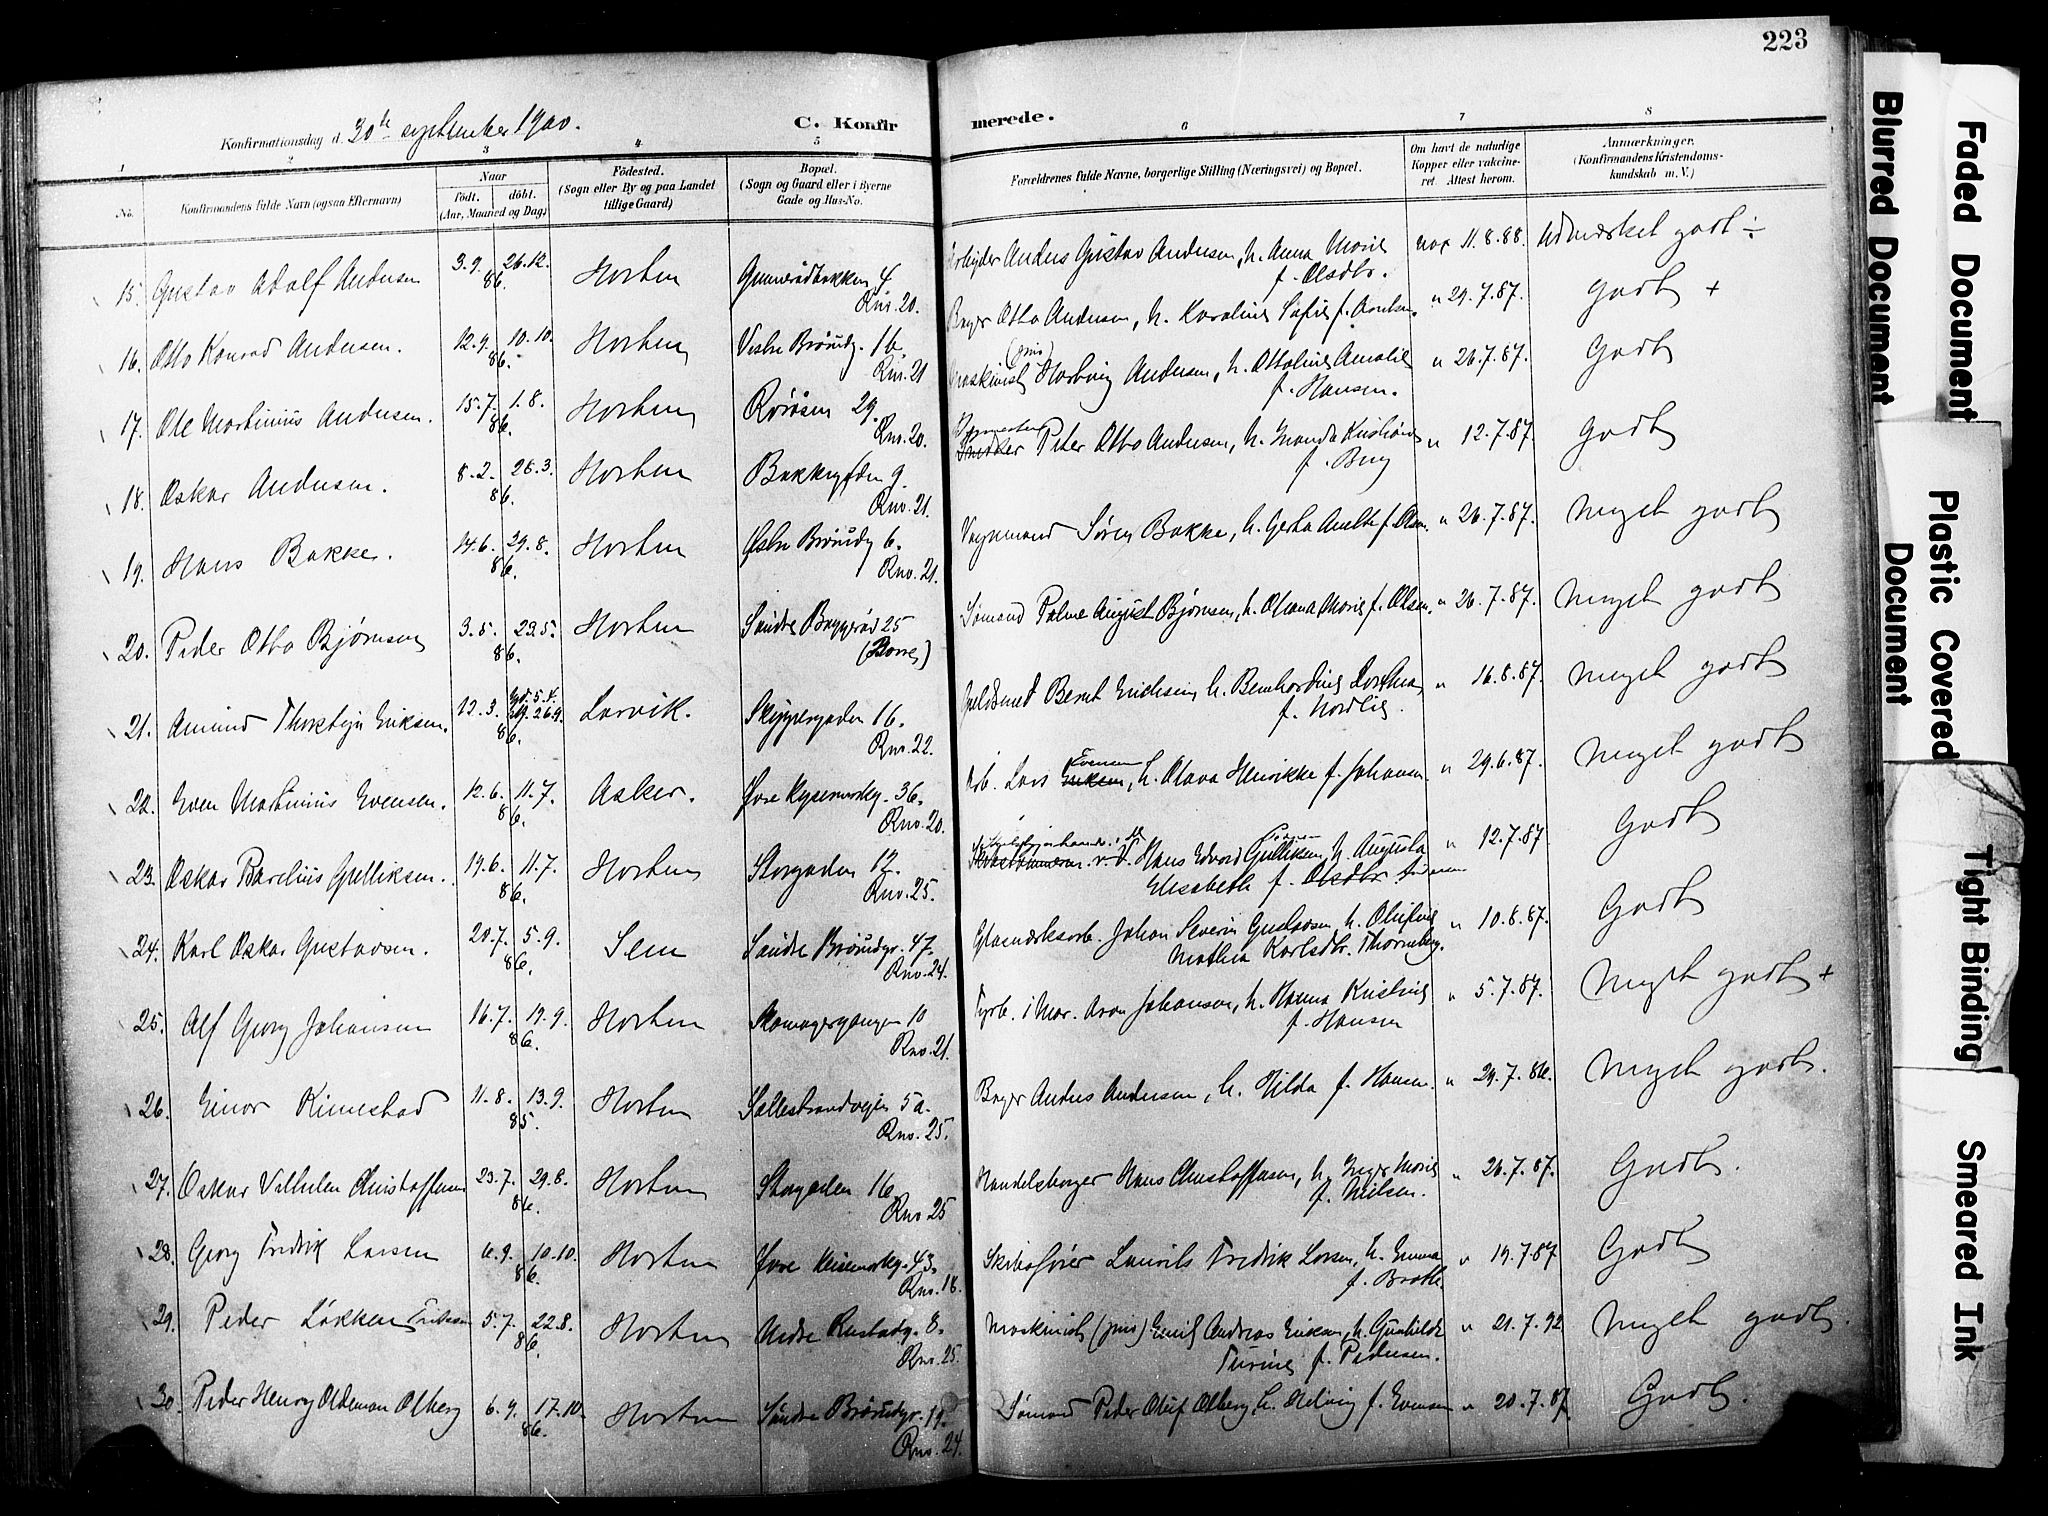 223
Konfirmationsdag d. 30te september 1900.
C. Konfirmerede.
1 2 3 4 5 6 7 8
No.
Konfirmandens fulde Navn (ogsaa Efternavn)
Naar
Födt. döbt.
(Aar, Maaned og Dag)
Födested.
(Sogn eller By og paa Landet
tillige Gaard)
Bopæl.
(Sogn og Gaard eller i Byerne
Gade og Hus-No.
Forældrenes fulde Navne, borgerlige Stilling (Næringsvei) og Bopæl.
Om havt de naturlige
Kopper eller vakcine-
ret. Attest herom.
Anmærkninger.
(Konfirmandens Kristendoms-
kundskab m. V.)
15. Gustav Adolf Andersen 3.9. 26.12. 86. Horten 4 Rnv. 20. Arbeider Anders Gustav Andersen, h. Anna Marie vax 11.8.88. Udmærket godt ÷
f. Olsdtr.
16. Otto Konrad Andersen. 12.9. 10.10. 86. Horten Vestre Braarudg. 16. Rnv. 21 Bager Otto Andersen, h. Karoline Sofie f. " 29.7.87. godt +
17. Ole Martinius Andersen. 15.7. 1.8. 86. Horten Røråsen 29. Rnv. 20. Maskinist (pens) Hartvig Andersen, h. Ottoline Amalie " 26.7.87. Godt
f. Hansen.
18. Oskar Andersen. 8.2. 28.3. 86. Horten Bakkegaden 9. Rnv. 21. Peter Otto Andersen, h. Kristiane " 12.7.87. godt
f. Berg
19. Hans Bakke. 14.6. 29.8. 86. Horten Østre Braarudg 6. Rnv. 21. Vognmand Søren Bakke, h. f. Olsen. " 26.7.87. Meget godt
20. Peder Otto Bjørnsen 3.5. 23.5. 86. Horten Søndre Baggerød 25 (Borre) Sømand August Bjørnsen, h. Marie f. Olsen. " 26.7.87. Meget godt
21. Amund Thorstein Eriksen. 12.3. 86. Larvik. Skippergaden 16. Rnv. 22. Guldsmed Bernt Erichsen, h. Bernhardine Dorthea " 16.8.87. Meget godt
f. Nordlie.
22. Even Martinius Evensen. 12.6. 11.7. 86. Asker. 36. Rnv. 20. Arb. Lars Eriksen Evensen, h. Olava Henrikke f. Johansen " 29.6.87. Meget godt
23. Oskar Barelius Gulliksen. 19.6. 11.7. 86. Horten Storgaden 12. Rnv. 25. Hans Edvard Gulliksen, h. Augusta " 12.7.87 Godt
Elisabeth f. Olsdtr.
24. Karl Oskar Gustavsen. 20.7. 5.9. 86. Sem Søndre Braarudgt. 47. Rnv. 24. Glasværksarb. Johan Severin Gustavsen h. Olufine " 10.8.87. Godt
Mathea Karlsdtr. Thorneberg.
25. Alf Georg Johansen 16.7. 19.9. 86. Horten Skomagergangen 10 Rnv. 21. Fyrb. i Mar. Aron Johansen, h. Hanna Kristine " 5.7.87. Meget godt +
f. Hansen
26. Einar Kimestad 11.8. 13.9. 85. Horten Falkestrandveien 5a. Rnv. 25. Bager Anders Andersen, h. Hilda f. Hansen. " 29.7.86. Meget godt.
27. Oskar Vilhelm Christoffersen 23.7. 29.8. 86. Horten Storgaden 16 Rnv 25 Handelsborger Hans Christoffersen, h. Inger Marie " 26.7.87. Godt.
f. Nielsen.
28. Georg Fredrik Larsen 6.9. 10.10. 86. Horten 43. Rnv. 18. Skibsfører Laurits Fredrik Larsen, h. Emma " 19.7.87 Godt
f.
29. Peder Løkken Eriksen 5.7. 22.8. 86. Horten Nedre Rustadg. 8. Rnv. 25. Maskinist (pens) Emil Andreas Eriksen, h. Gunhilde " 21.7.92 Meget godt.
Turine f. Pedersen.
30. Peder Henry Oldeman Olberg 6.9. 17.10. 86. Horten Søndre Braarudgt. 19. Rnv. 24. Sømand Peder Oluf Olberg, h. Helvig f. Evensen " 20.7.87. Godt.
Faded Document
Blurred Document
Plastic Covered
Document
Tight Binding
Smeared Ink